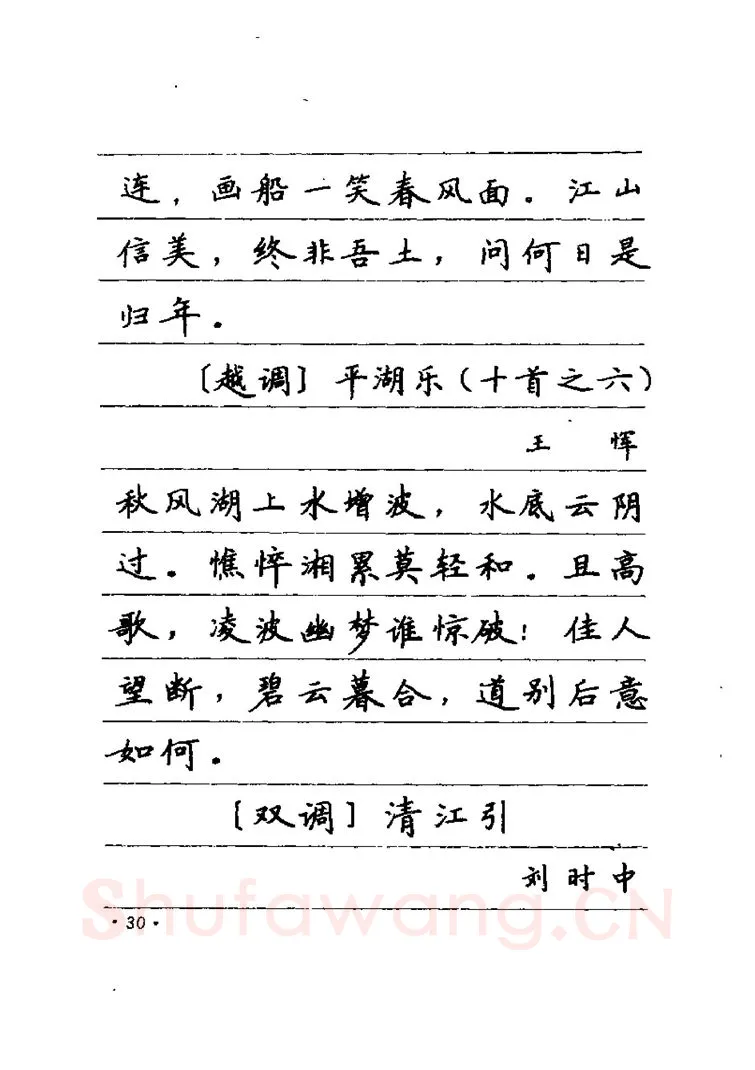 连，画船一笑春风面。江山
信美，终非吾土，问何日是
归年。
〔越调〕平湖乐（十首之六）
王 恽
秋风湖上水增波，水底云阴
过。憔悴湘累莫轻和。且高
歌，凌波幽梦谁惊破！佳人
望断，碧云暮合，道别后意
如何。
〔双调〕清江引
刘时中
·30·
Shufawang.CN